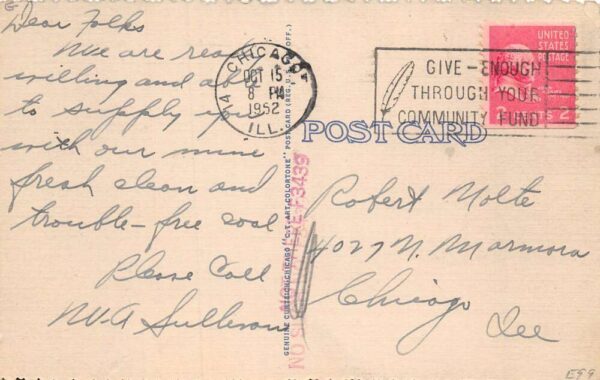 Dear Folks
We are ready
willing and able
to supply you
with our mine
fresh clean and
trouble-free coal
Please Call
Sullivan
CHICAGO
OCT 15
8 PM
1952
ILL.
GIVE - ENOUGH
THROUGH YOUR
COMMUNITY FUND
UNITED
STATES
POSTAGE
2
POST CARD
GENUINE CURTEICH-CHICAGO "C.T. ART-COLORTONE" POST CARD (REG. U.S. PAT. OFF.)
Robert Nolte
4027 N. Marmora
Chicago
Ill
E99